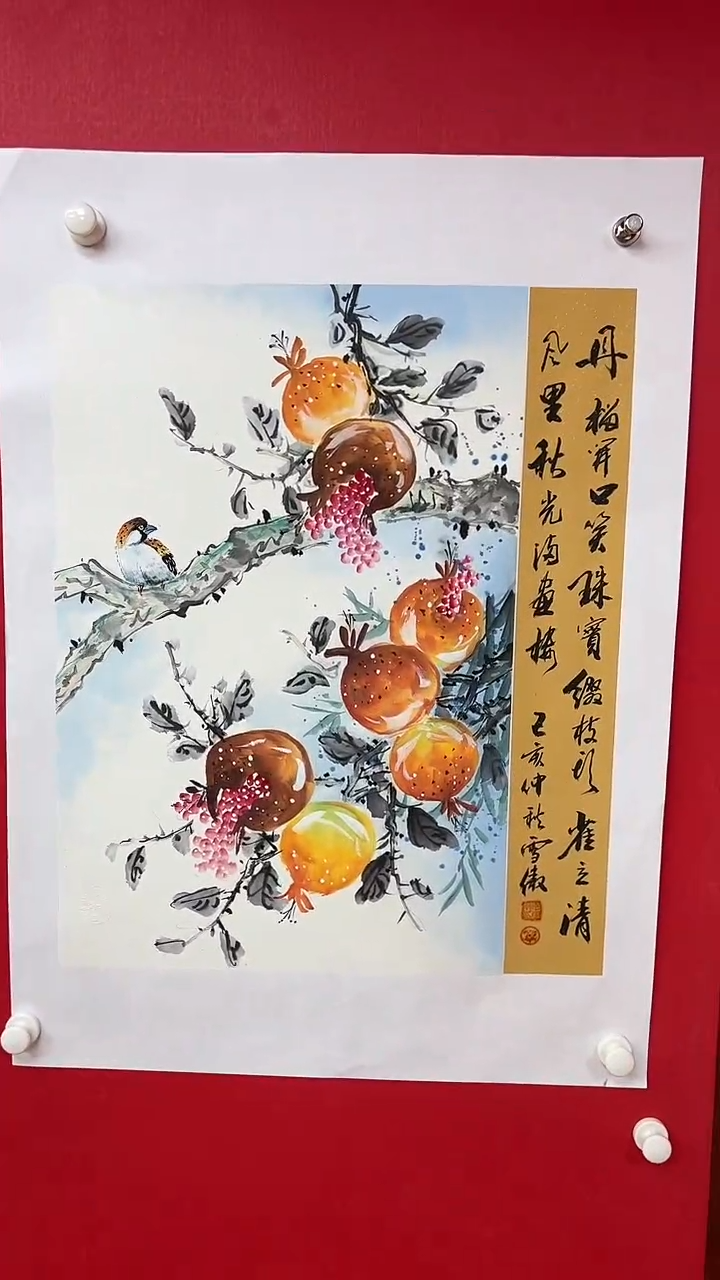 丹榴开口笑珠寳缀枝头雀立清
风里秋光满画楼
己亥仲秋雪傲